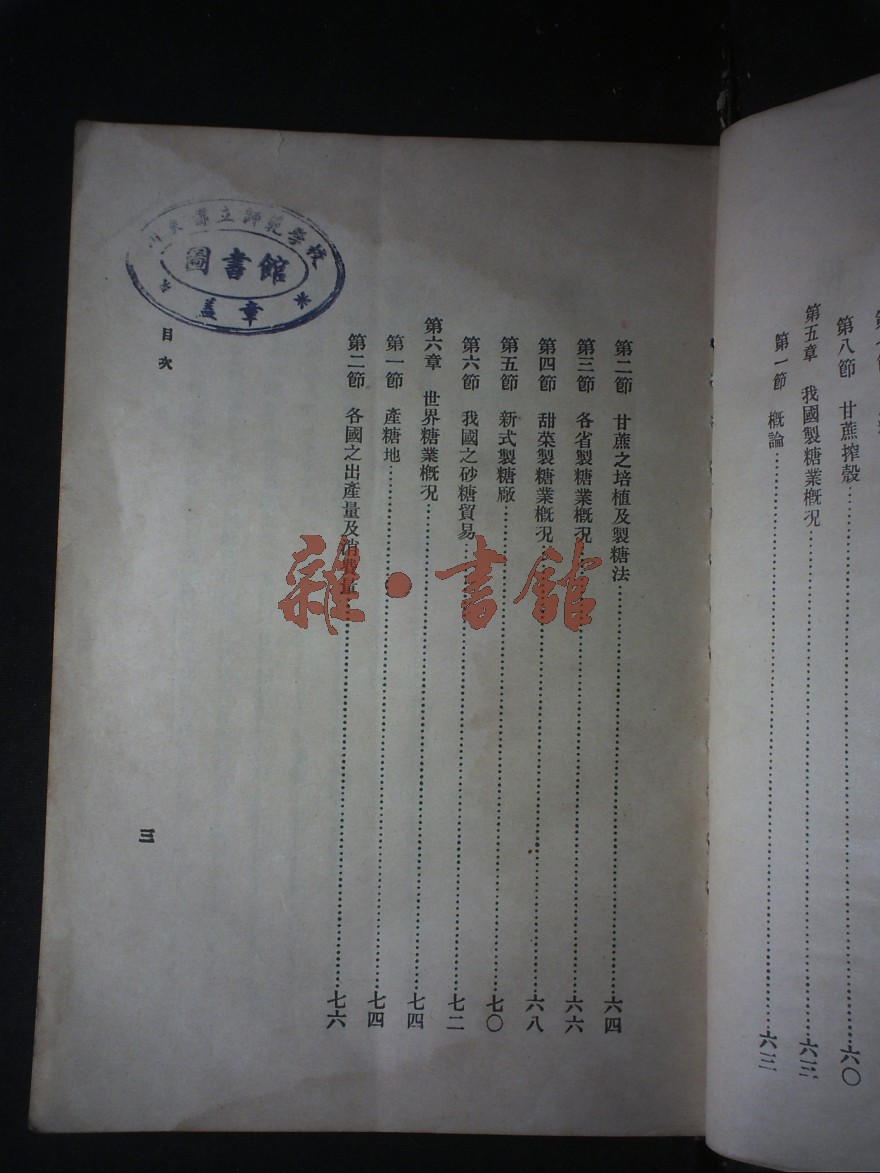 第八節 甘蔗搾殼……六〇
第五章 我國製糖業概況……六三
第一節 概論……六三
第二節 甘蔗之培植及製糖法……六四
第三節 各省製糖業概況……六六
第四節 甜菜製糖業概況……六八
第五節 新式製糖廠……七〇
第六節 我國之砂糖貿易……七二
第六章 世界糖業概況……七四
第一節 產糖地……七四
第二節 各國之出產量及消費量……七六
目次
三
東縣立師範學校
圖書館
蓋章
雜·書館